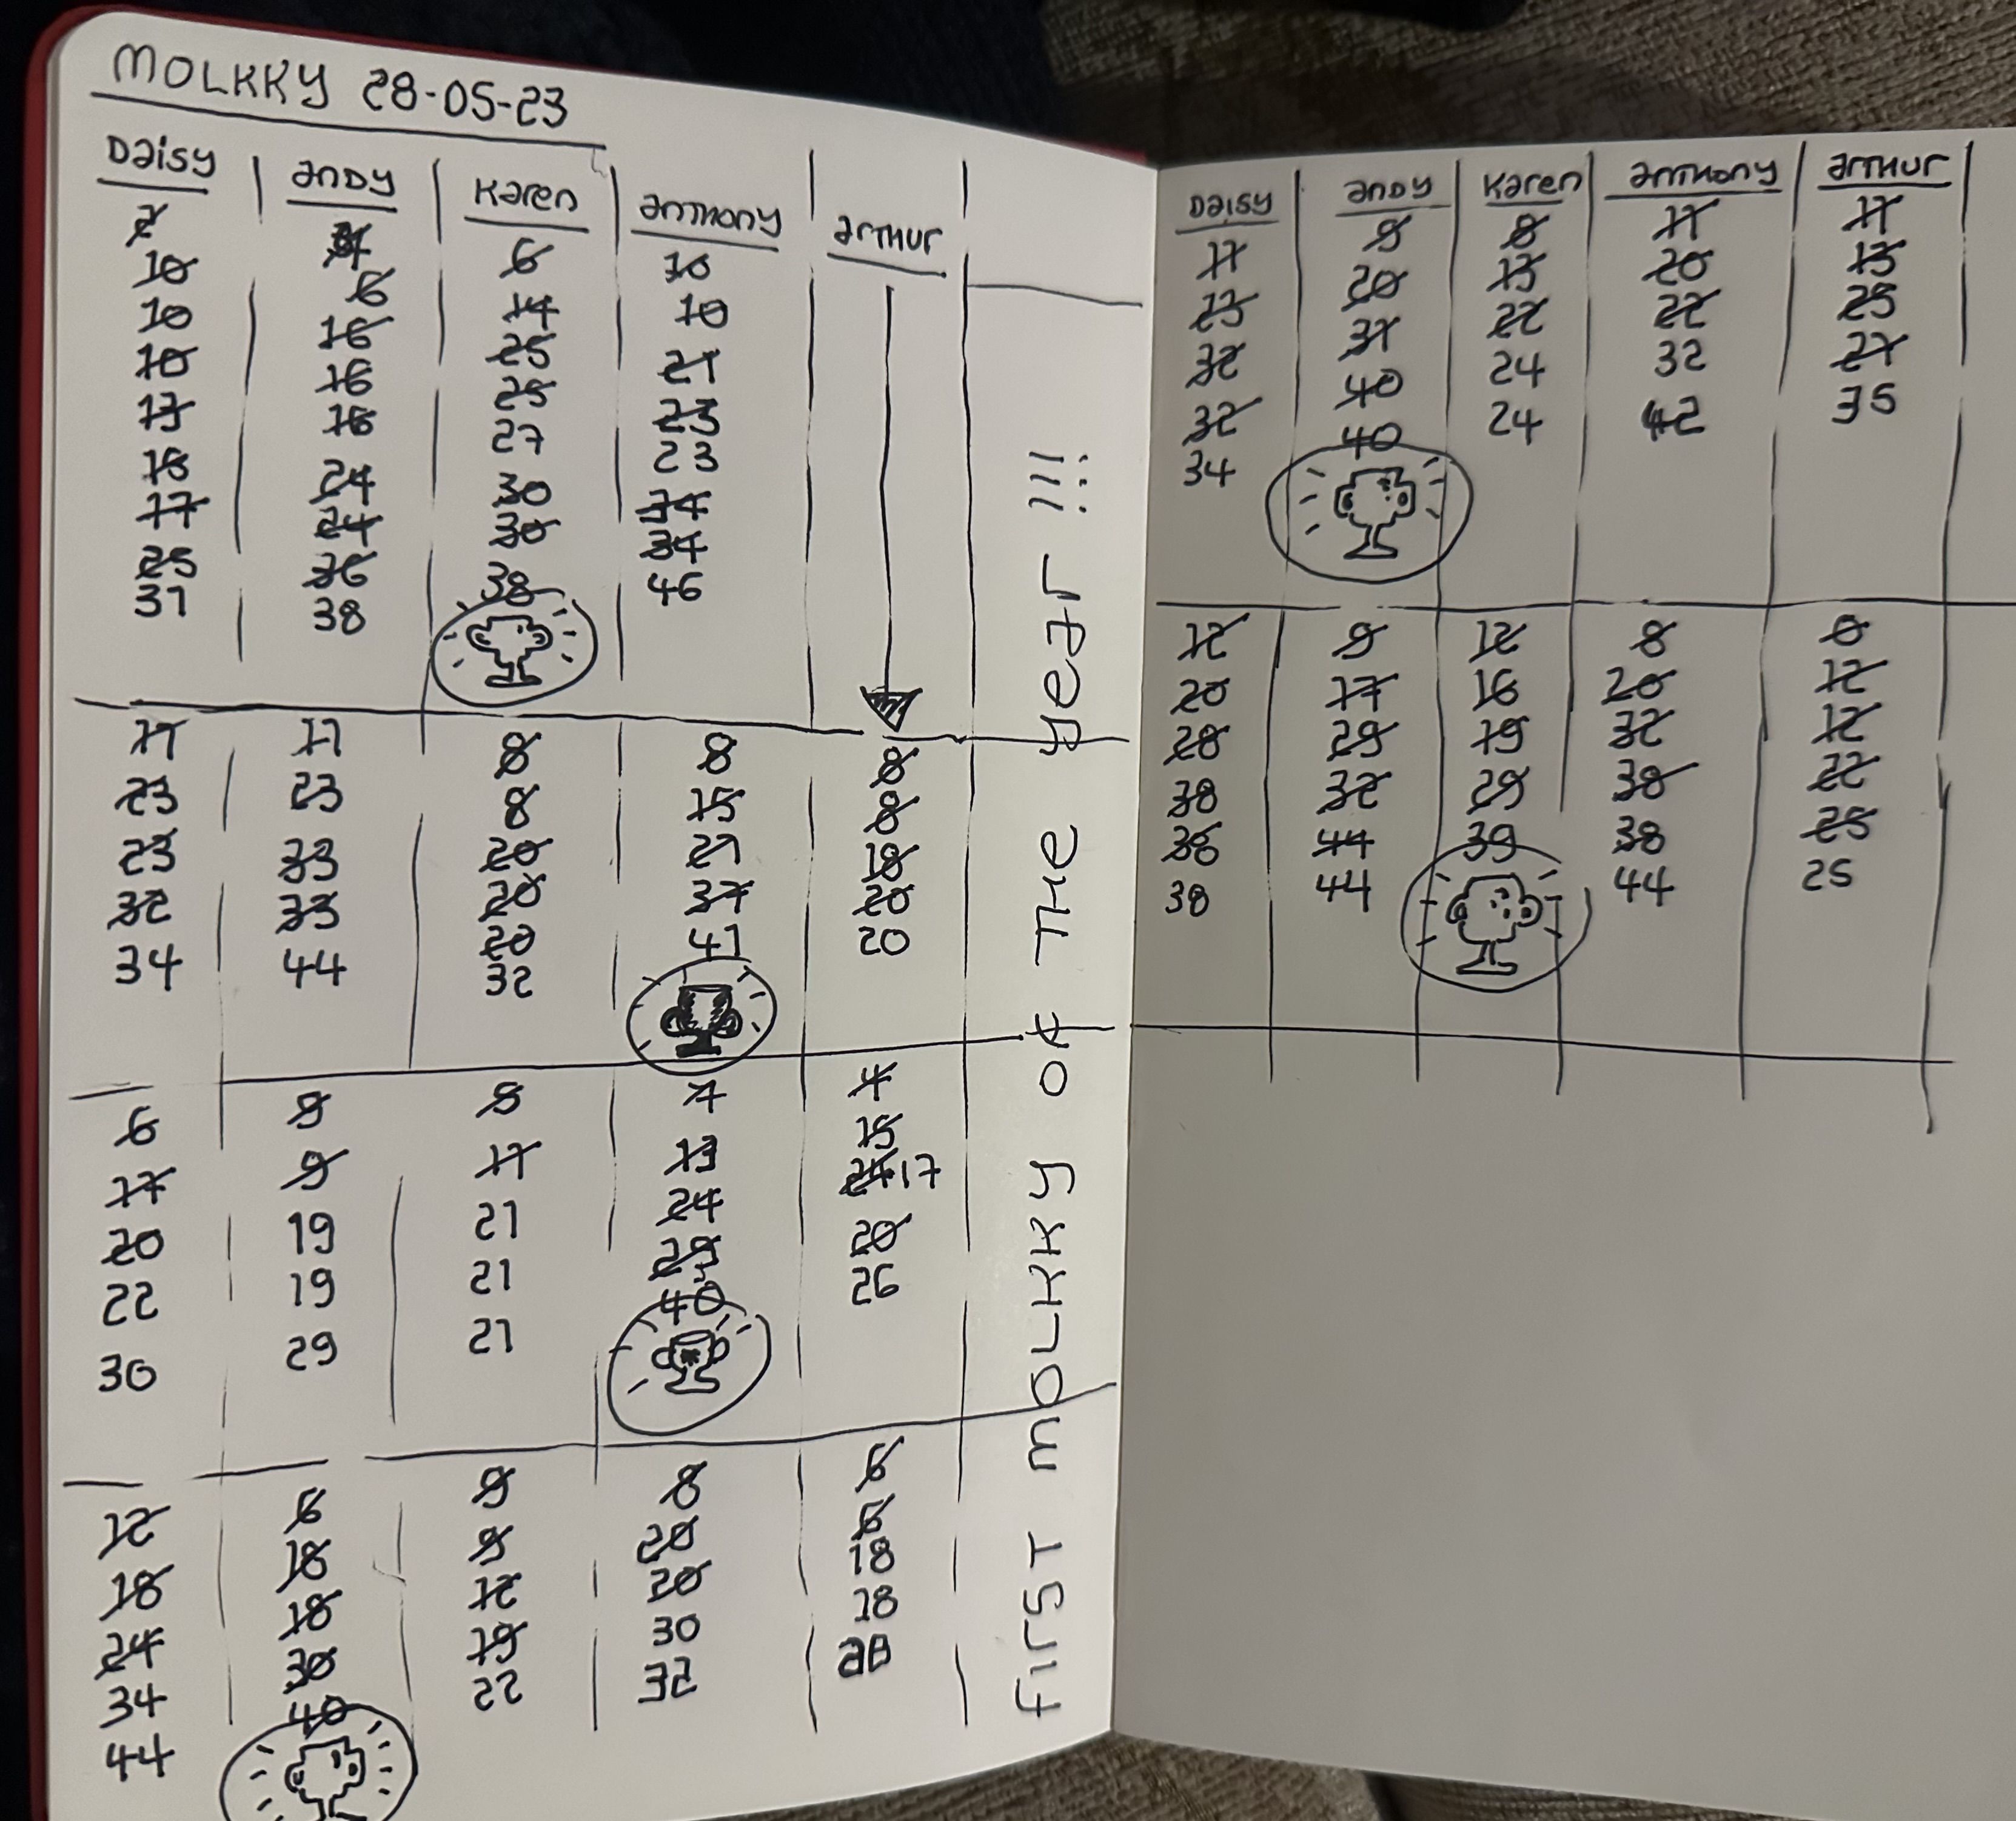 MOLKKY 28-05-23
Daisy andy Karen anthony arthur
10 6 6 10
10 16 14 10
10 16 25 21
16 25 23
24 27 23
17 24 30 34
25 36 30 34
37 38 38 46
11 11 8 8 8
23 23 8 15 8
23 33 20 27 18
32 33 20 37 20
34 44 20 41 20
32
6 9 9 7 4
17 9 11 13 15
20 19 21 24 17
22 19 21 29 20
30 29 21 40 26
12 6 9 8 6
18 18 9 20 6
24 18 12 20 18
34 30 19 30 18
44 40 22 32
FIRST MOLKKY OF THE year !!!
Daisy andy Karen anthony arthur
11 9 8 11 11
23 20 13 20 13
32 31 22 22 25
32 40 24 32 27
34 40 24 42 35
12 9 12 8 8
20 17 16 20 12
28 29 19 32 12
38 32 29 38 22
38 44 39 38 25
38 44 44 25